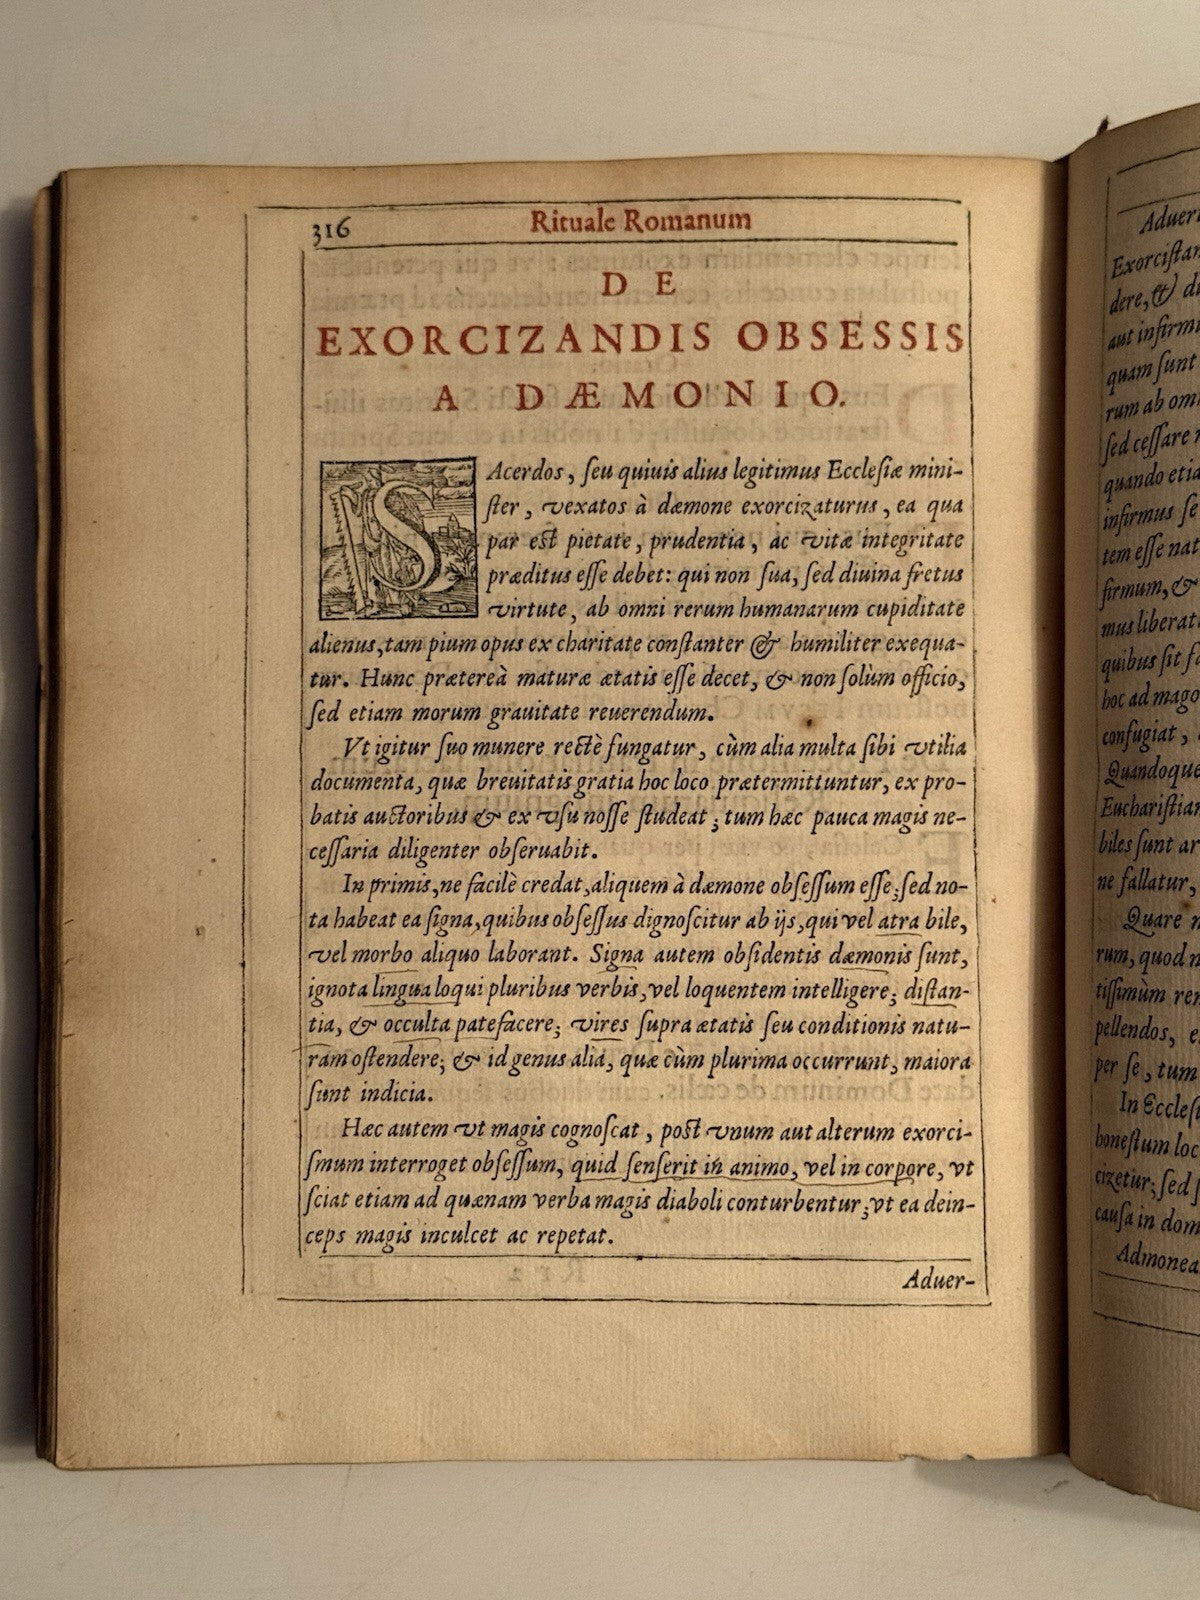 316 Rituale Romanum
DE
EXORCIZANDIS OBSESSIS
A DÆMONIO.
SAcerdos, ſeu quiuis alius legitimus Eccleſiæ mini-
ſter, vexatos à dæmone exorcizaturus, ea qua
par eſt pietate, prudentia, ac vitæ integritate
præditus eſſe debet: qui non ſua, ſed diuina fretus
virtute, ab omni rerum humanarum cupiditate
alienus, tam pium opus ex charitate conſtanter & humiliter exequa-
tur. Hunc prætereà maturæ ætatis eſſe decet, & non ſolùm officio,
ſed etiam morum grauitate reuerendum.
Vt igitur ſuo munere rectè fungatur, cùm alia multa ſibi vtilia
documenta, quæ breuitatis gratia hoc loco prætermittuntur, ex pro-
batis auctoribus & ex vſu noſſe ſtudeat; tum hæc pauca magis ne-
ceſſaria diligenter obſeruabit.
In primis, ne facilè credat, aliquem à dæmone obſeſſum eſſe; ſed no-
ta habeat ea ſigna, quibus obſeſſus dignoſcitur ab ijs, qui vel atra bile,
vel morbo aliquo laborant. Signa autem obſidentis dæmonis ſunt,
ignota lingua loqui pluribus verbis, vel loquentem intelligere; diſtan-
tia, & occulta patefacere; vires ſupra ætatis ſeu conditionis natu-
ram oſtendere; & id genus alia, quæ cùm plurima occurrunt, maiora
ſunt indicia.
Hæc autem vt magis cognoſcat, poſt vnum aut alterum exorci-
ſmum interroget obſeſſum, quid ſenſerit in animo, vel in corpore, vt
ſciat etiam ad quænam verba magis diaboli conturbentur; vt ea dein-
ceps magis inculcet ac repetat.
Aduer-
Aduer
Exorciſtan
dere, & di
aut infirm
quam ſunt
rum ab om
ſed ceſſare
quando etia
infirmus ſe
tem eſſe nat
firmum, &
mus liberat
quibus ſit f
hoc ad mago
confugiat,
Quandoque
Euchariſtian
biles ſunt ar
ne fallatur,
Quare
rum, quod n
tiſſimùm rem
pellendos, e
per ſe, tum
In Eccleſ
honeſtum loc
cizetur; ſed
cauſa in dom
Admonea